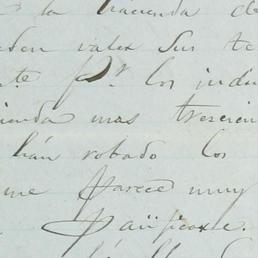 la hacienda de
eden valer sus te
nte Pr. los indi
ienda mas trescien
han robado los
me parece muy